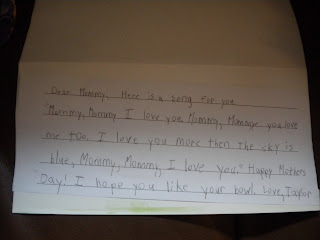 Dear Mommy, Here is a song for you
"Mommy, Mommy I love you, Mommy, Mommy you love
me too. I love you more then the sky is
blue, Mommy, Mommy, I love you." Happy Mothers
Day! I hope you like your bowl. Love, Taylor